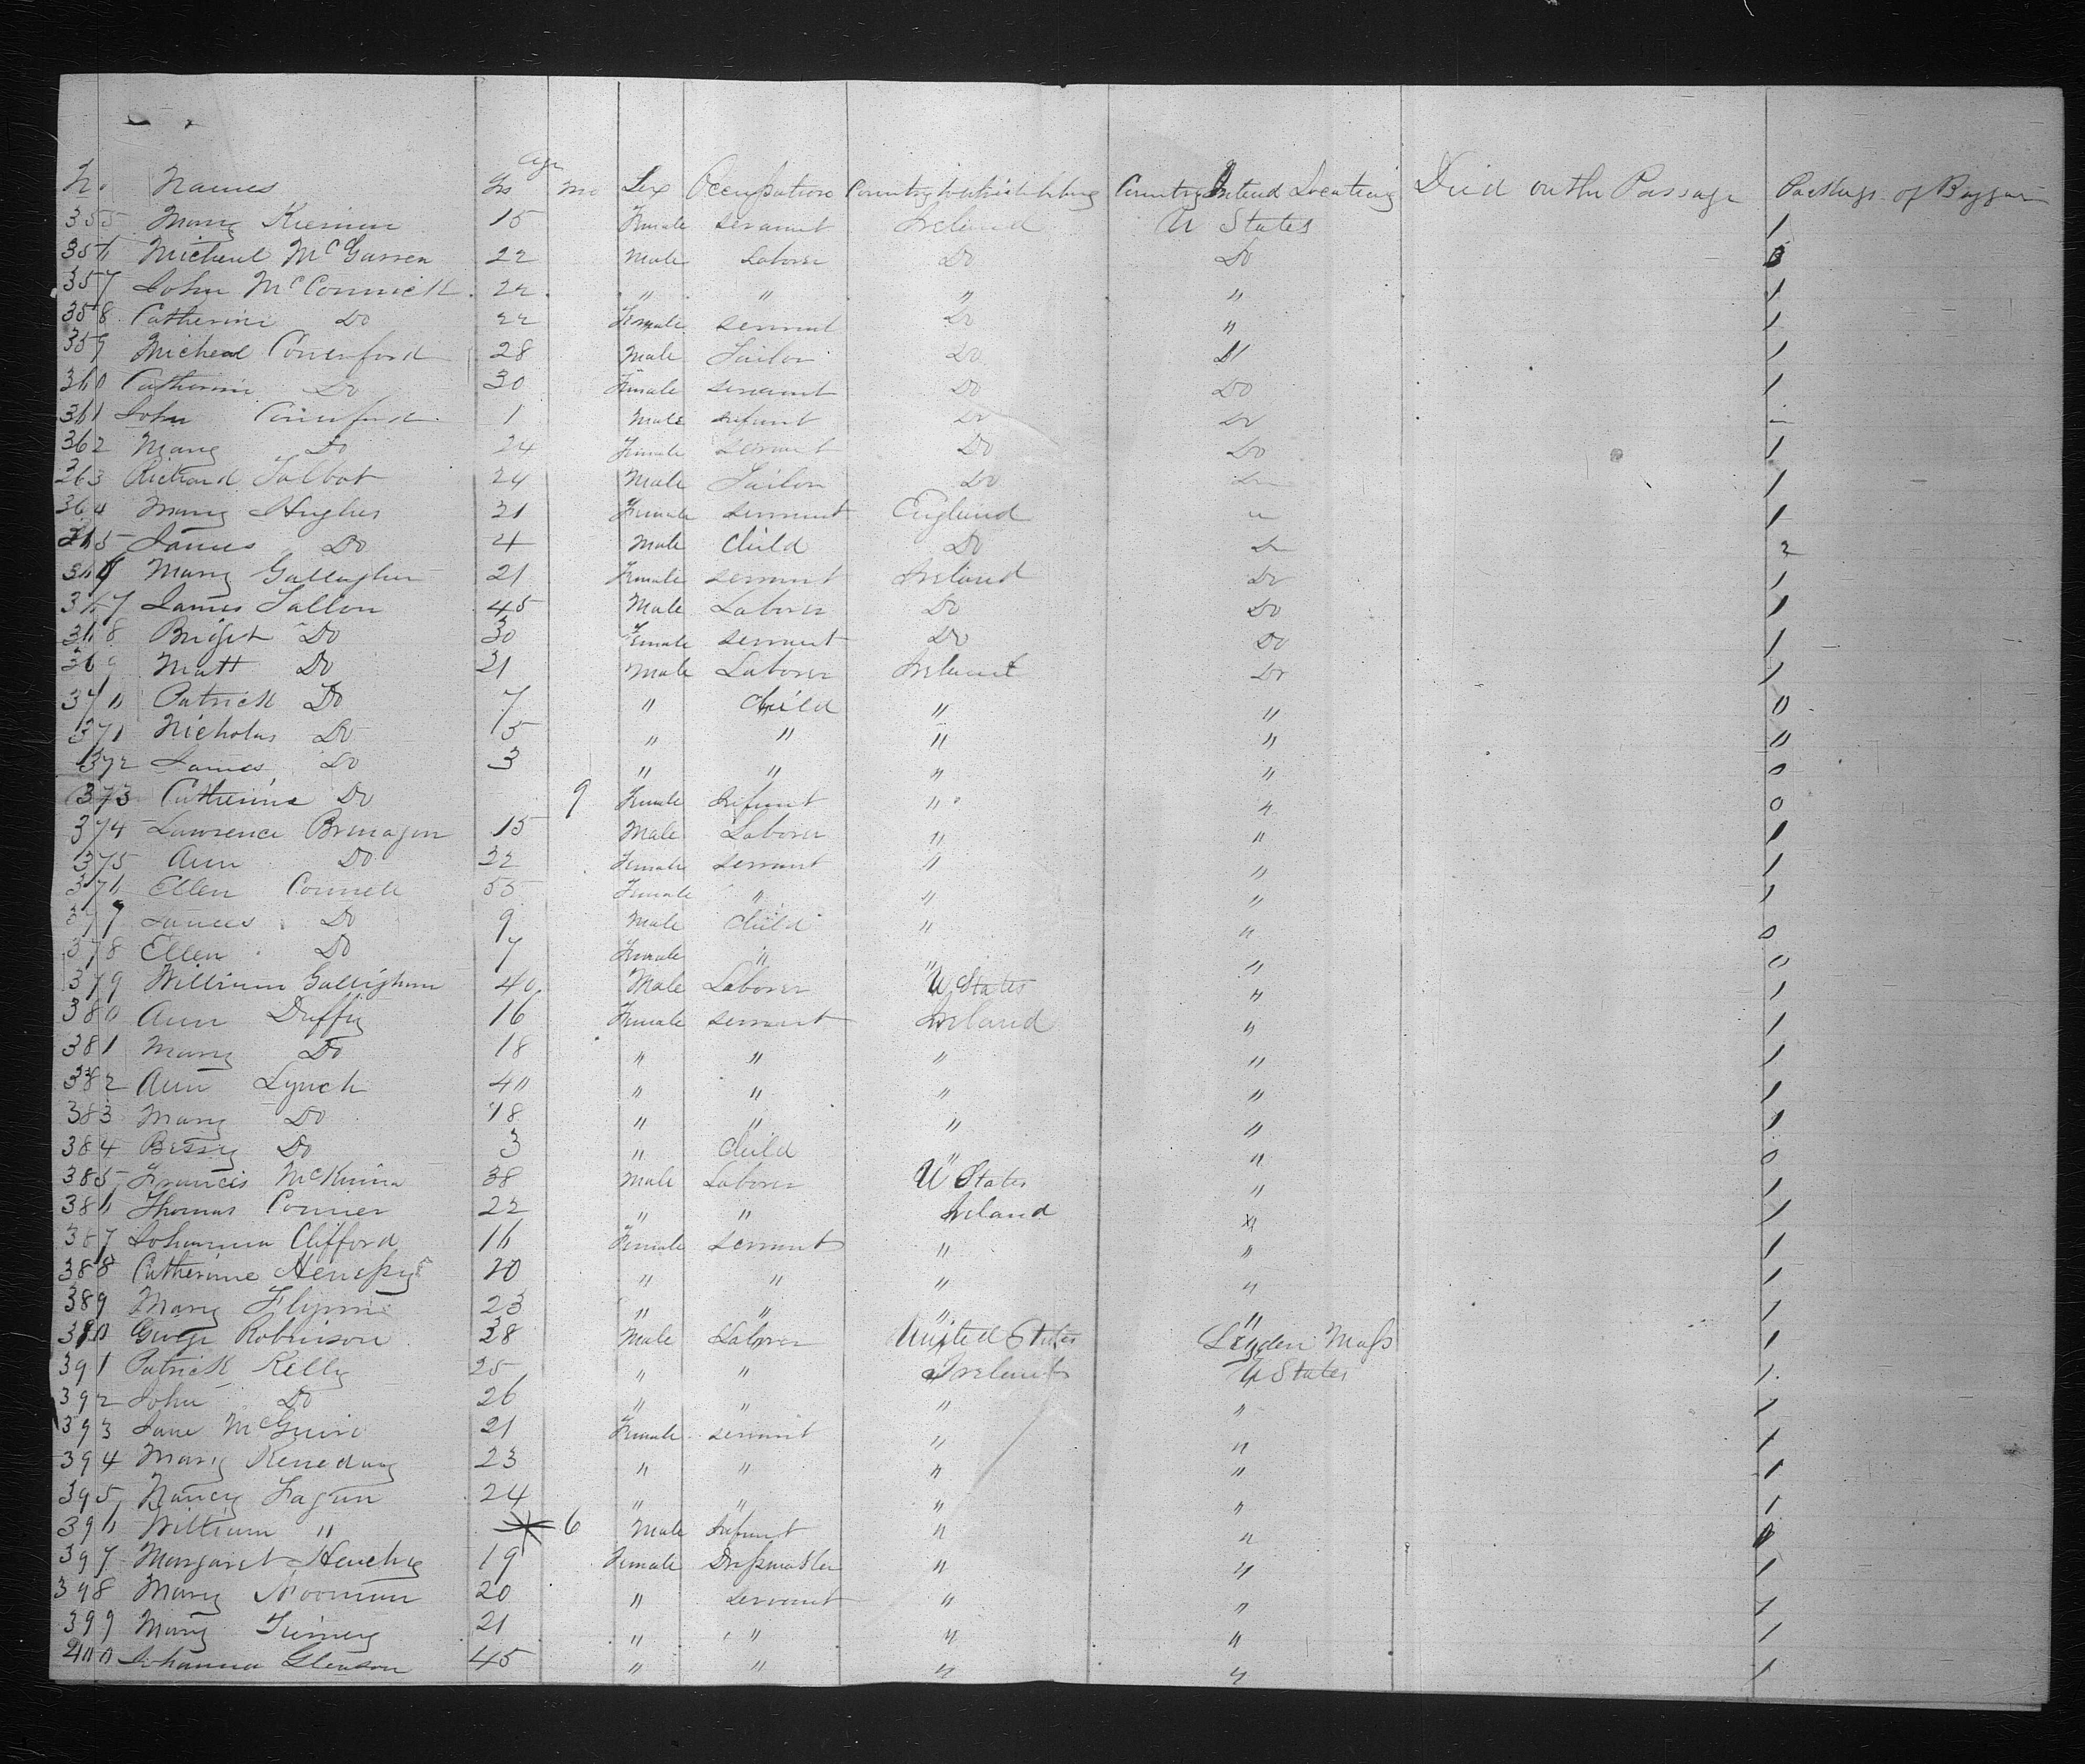 Age
No. Names Yrs Mo Sex Occupation Country to which belong Country Intend Locating Died on the Passage Packages of Baggage
355 Mary Kiernan 15 Female servant Ireland U States 1
356 Micheal McGarren 22 Male Laborer Do Do
357 John McCormick 22 " " " " 1
358 Catherine Do 22 Female servant Do " 1
359 Micheal Conerford 28 Male Tailor Do " 1
360 Catherine Do 30 Female servant Do Do 1
361 John Conerford 1 Male infant Do Do -
362 Mary Do 24 Female servant Do Do 1
363 Richard Talbot 24 Male Tailor Do Do 1
364 Mary Hughes 21 Female servant England " 1
365 James Do 4 Male Child Do Do 2
366 Mary Gallagher 21 Female servant Ireland Do 1
367 James Tallon 45 Male Laborer Do Do 1
368 Bridget Do 30 Female servant Do Do 1
369 Matt Do 21 Male Laborer Ireland Do 1
370 Patrick Do 7 " Child " " 0
371 Nicholas Do 5 " " " " 0
372 James Do 3 " " " " 0
373 Catherine Do 9 Female Infant " " 0
374 Lawrence Brenagen 15 Male Laborer " " 1
375 Ann Do 22 Female servant " " 1
376 Ellen Connell 55 Female " " " 1
377 James Do 9 Male Child " " 0
378 Ellen Do 7 Female " " " 0
379 William Galligham 40 Male Laborer U States " 1
380 Ann Duffy 16 Female servant Ireland " 1
381 Mary Do 18 " " " " 1
382 Ann Lynch 40 " " " " 1
383 Mary Do 18 " " " " 1
384 Bessy Do 3 " Child " " 0
385 Francis McKinna 38 Male Laborer U States " 1
386 Thomas Conner 22 " " Ireland " 1
387 Johanna Clifford 16 Female servant " " 1
388 Catherine 20 " " " " 1
389 Mary Flynn 23 " " " " 1
390 George Robinson 28 Male Laborer United States Leyden Mass 1
391 Patrick Kelly 25 " " Ireland U States 1
392 John Do 26 " " " " 1
393 Jane McGuire 21 Female servant " " 1
394 Mary Keneday 23 " " " " 1
395 Nancy Fagan 24 " " " " 1
396 William " 6 Male Infant " " 0
397 Margaret 19 Female Dressmaker " " 1
398 Mary Noonan 20 " servant " " 1
399 Mary Tierney 21 " " " " 1
400 Johanna Gleason 45 " " " " 1